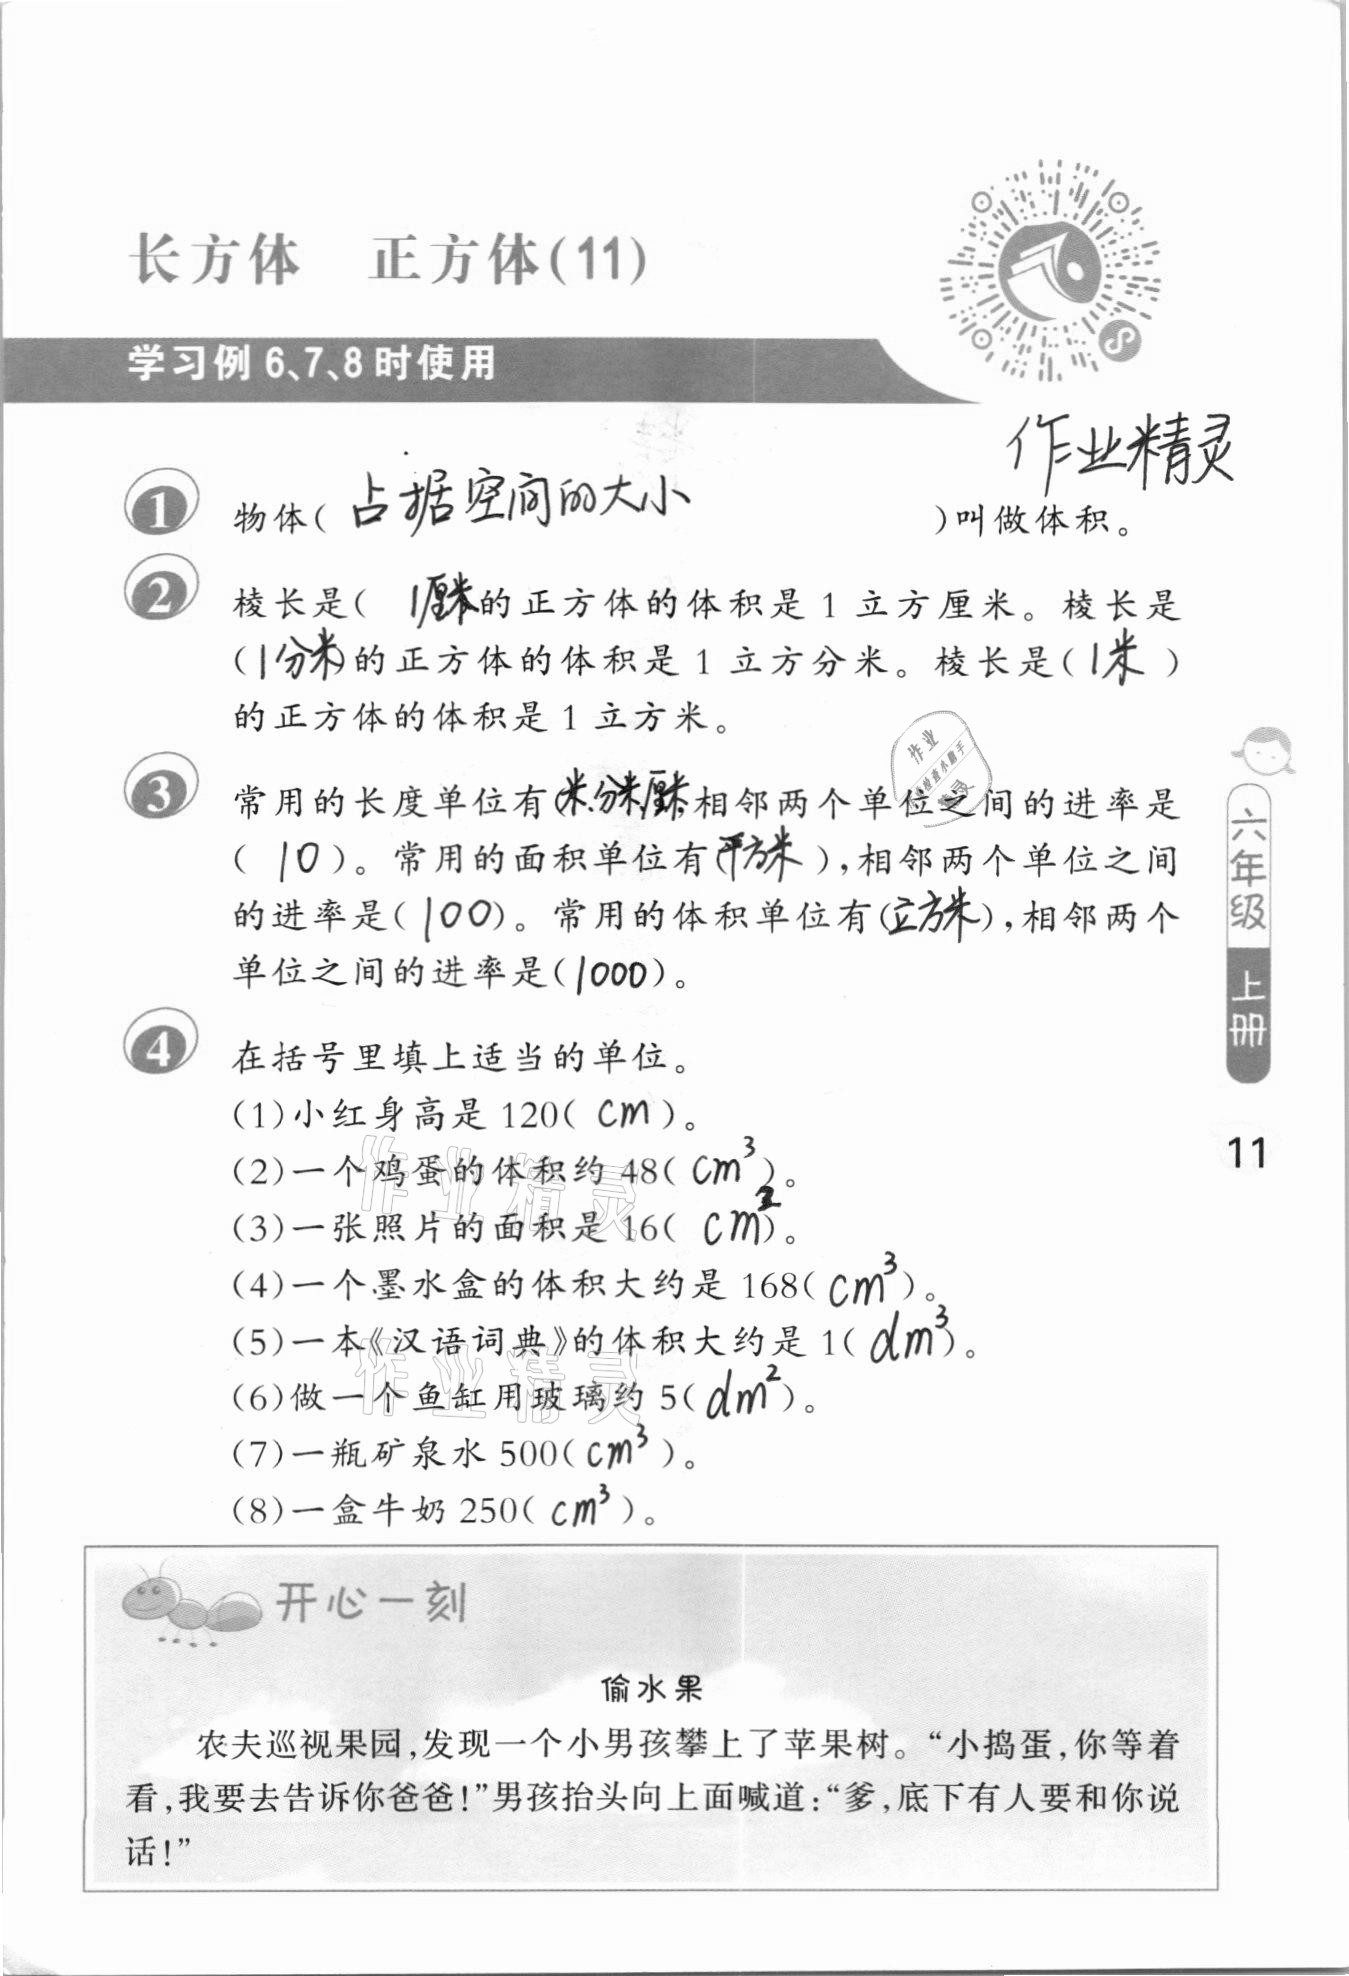 长方体 正方体(11)
学习例6、7、8时使用
作业精灵
1 物体( 占据空间的大小 )叫做体积。
2 棱长是( 1厘米的正方体的体积是1立方厘米。棱长是
(1分米)的正方体的体积是1立方分米。棱长是(1米)
的正方体的体积是1立方米。
3 常用的长度单位有(米.分米,厘米,相邻两个单位之间的进率是
(10)。常用的面积单位有(平方米),相邻两个单位之间
的进率是(100)。常用的体积单位有(立方米),相邻两个
单位之间的进率是(1000)。
作业
检查小助手
精灵
4 在括号里填上适当的单位。
(1)小红身高是120(cm)。
(2)一个鸡蛋的体积约48(cm³)。
(3)一张照片的面积是16(cm²)。
(4)一个墨水盒的体积大约是168(cm³)。
(5)一本《汉语词典》的体积大约是1(dm³)。
(6)做一个鱼缸用玻璃约5(dm²)。
(7)一瓶矿泉水500(cm³)。
(8)一盒牛奶250(cm³)。
作业精灵
作业精灵
六年级
上册
11
开心一刻
偷水果
农夫巡视果园,发现一个小男孩攀上了苹果树。“小捣蛋,你等着
看,我要去告诉你爸爸!”男孩抬头向上面喊道:“爹,底下有人要和你说
话!”